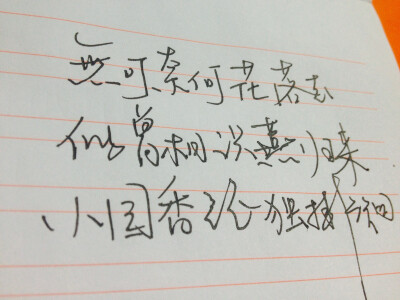 無可奈何花落去
似曾相识燕归来
小园香径独徘徊